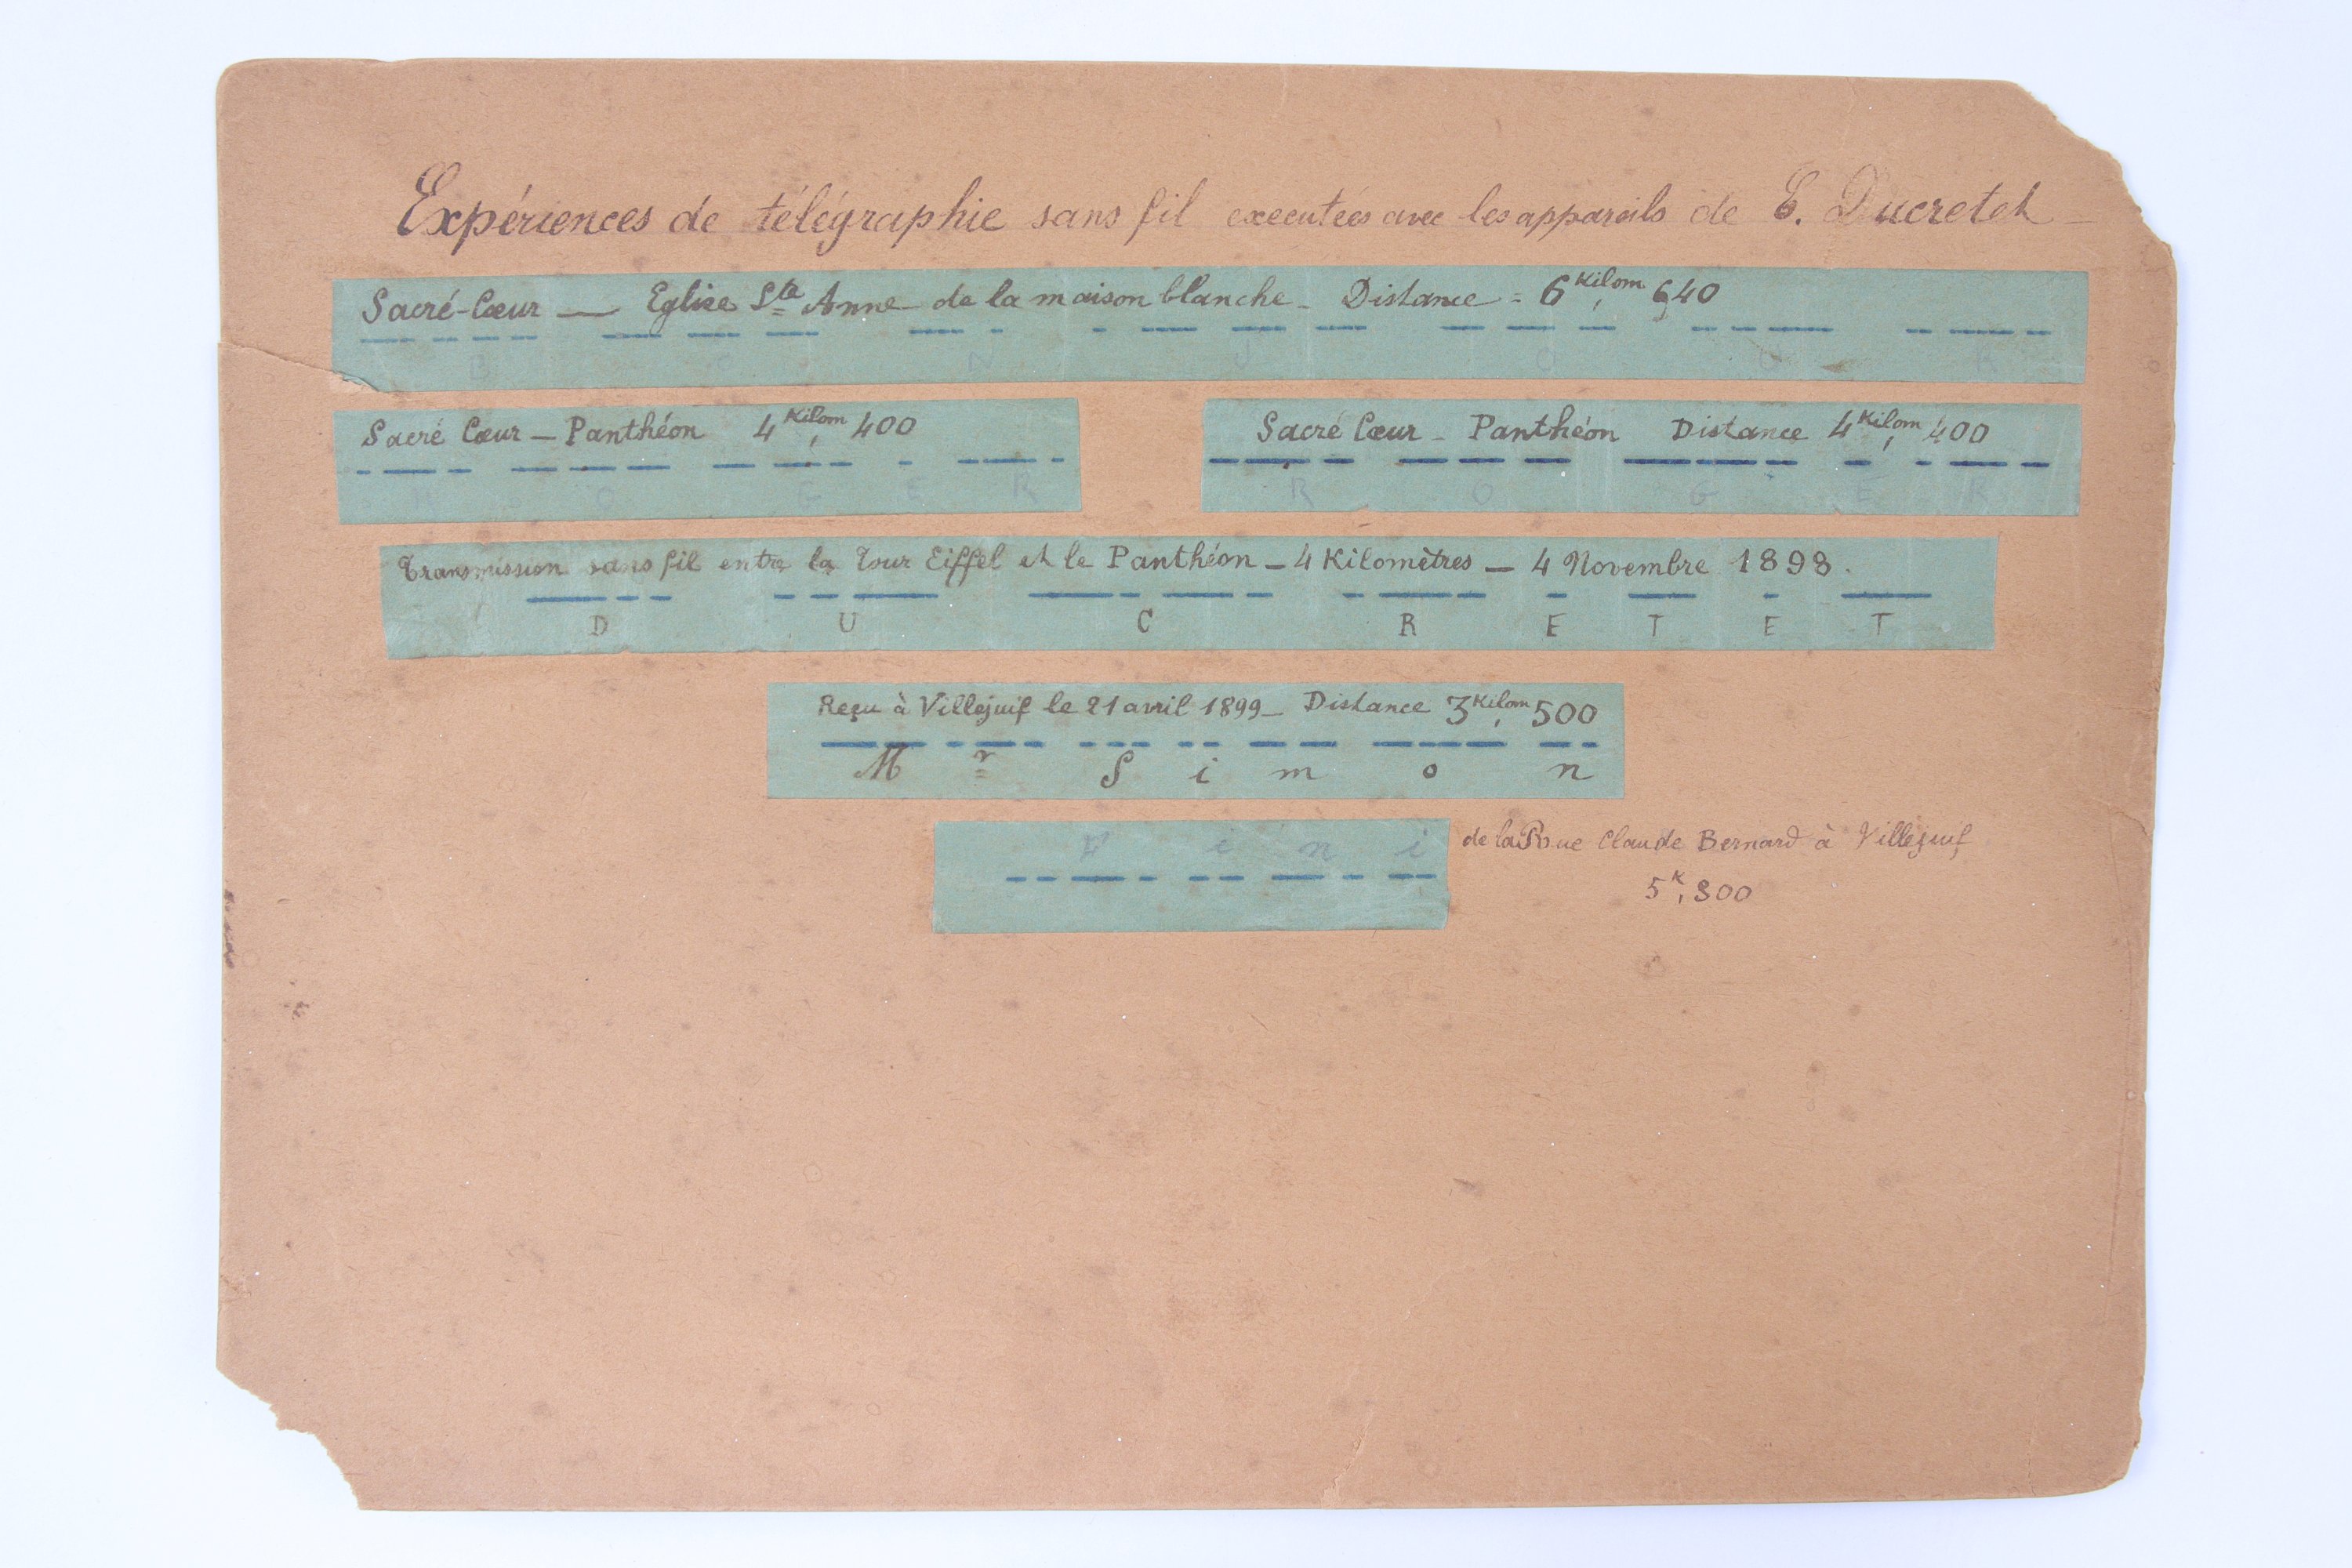 Expériences de télégraphie sans fil executées avec les appareils de E. Ducretet
Sacré-Cœur — Eglise Ste Anne de la maison blanche - Distance = 6 Kilom, 640
B O N J O U R
Sacré Cœur - Panthéon 4 Kilom, 400
R O G E R
Sacré Cœur - Panthéon Distance 4 Kilom, 400
R O G E R
Transmission sans fil entre la Tour Eiffel et le Panthéon - 4 Kilomètres - 4 Novembre 1898.
D U C R E T E T
Reçu à Villejuif le 21 avril 1899 - Distance 3 Kilom, 500
Mr Simon
F i n i
de la Rue Claude Bernard à Villejuif
5 K, 800